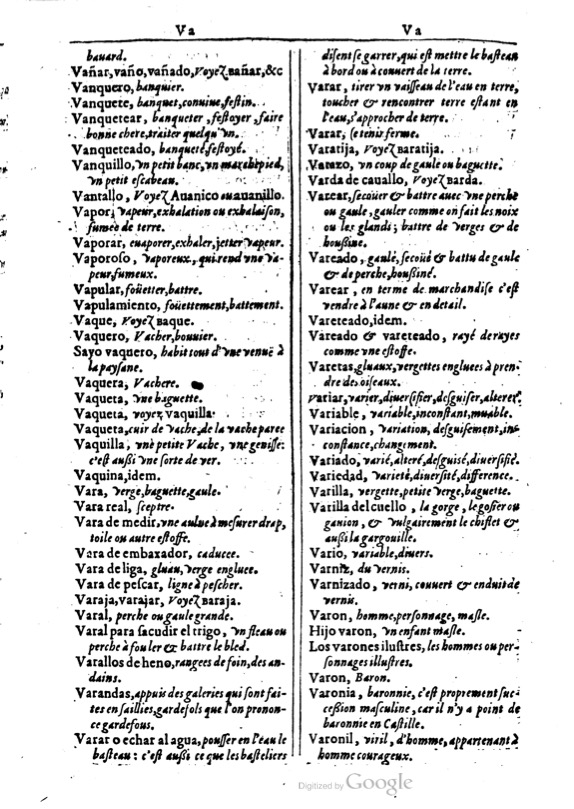 Va
Va
bauard.
Vañar, vaño, vañado, Voyez Bañar, &c
Vanquero, banquier.
Vanquete, banquet, conuiue, festin.
Vanquetear, banqueter, festoyer, faire
bonne chere, traiter quelqu'vn.
Vanqueteado, banqueté, festoyé.
Vanquillo, vn petit banc, vn marchepied,
vn petit escabeau.
Vantallo, Voyez Auanico ou auanillo.
Vapor, vapeur, exhalation ou exhalaison,
fumée de terre.
Vaporar, euaporer, exhaler, jetter vapeur.
Vaporoso, vaporeux, qui rend vne va-
peur, fumeux.
Vapular, foüetter, battre.
Vapulamiento, foüettement, battement.
Vaque, Voyez Baque.
Vaquero, Vacher, bouuier.
Sayo vaquero, habit tout d'vne venuë à
la paysane.
Vaquera, Vachere.
Vaqueta, vne baguette.
Vaqueta, voyez vaquilla
Vaqueta, cuir de vache, de la vache paree
Vaquilla, vne petite Vache, vne genisse:
c'est aussi vne sorte de ver.
Vaquina, idem.
Vara, verge, baguette, gaule.
Vara real, sceptre.
Vara de medir, vne aulne à mesurer drap,
toile ou autre estoffe.
Vara de embaxador, caducee.
Vara de liga, gluau, verge engluee.
Vara de pescar, ligne à pescher.
Varaja, varajar, Voyez Baraja.
Varal, perche ou gaule grande.
Varal para sacudir el trigo, vn fleau ou
perche à fouler & battre le bled.
Varallos de heno, rangees de foin, des an-
dains.
Varandas, appuis des galeries qui sont fai-
tes en saillies, gardefols que l'on pronon-
ce gardefous.
Varar o echar al agua, pousser en l'eau le
basteau: c'est aussi ce que les basteliers
disent se garrer, qui est mettre le basteau
à bord ou à couuert de la terre.
Varar, tirer vn vaisseau de l'eau en terre,
toucher & rencontrer terre estant en
l'eau, s'approcher de terre.
Varar, se tenir ferme.
Varatija, Voyez Baratija.
Varazo, vn coup de gaule ou baguette.
Varda de cauallo, Voyez Barda.
Varear, secoüer & battre auec vne perche
ou gaule, gauler comme on fait les noix
ou les glands; battre de verges & de
houssine.
Vareado, gaulé, secoüé & battu de gaule
& de perche, houssiné.
Varear, en terme de marchandise c'est
vendre à l'aune & en detail.
Vareteado, idem.
Vareado & vareteado, rayé de rayes
comme vne estoffe.
Varetas, gluaux, vergettes engluees à pren-
dre des oiseaux.
Variar, varier, diuersifier, desguiser, alterer.
Variable, variable, inconstant, muable.
Variacion, variation, desguisement, in-
constance, changement.
Variado, varié, alteré, desguisé, diuersifié.
Variedad, varieté, diuersité, difference.
Varilla, vergette, petite verge, baguette.
Varilla del cuello, la gorge, le gosier ou
ganion, & vulgairement le chiflet &
aussi la gargouille.
Vario, variable, diuers.
Varniz, du vernis.
Varnizado, verni, couuert & enduit de
vernis.
Varon, homme, personnage, masle.
Hijo varon, vn enfant masle.
Los varones ilustres, les hommes ou per-
sonnages illustres.
Varon, Baron.
Varonia, baronnie, c'est proprement suc-
cession masculine, car il n'y a point de
baronnie en Castille.
Varonil, viril, d'homme, appartenant à
homme courageux.
Digitized by Google